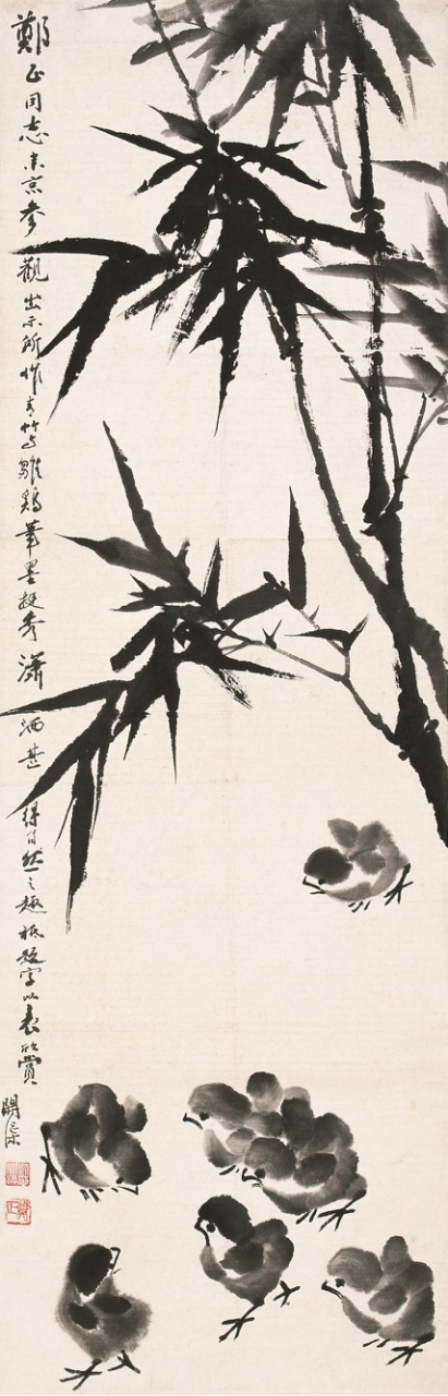 鄭正同志来京參觀出示所作青竹与雛鷄筆墨挺秀瀟洒甚得自然之趣祇短字以表欣賞
開渠